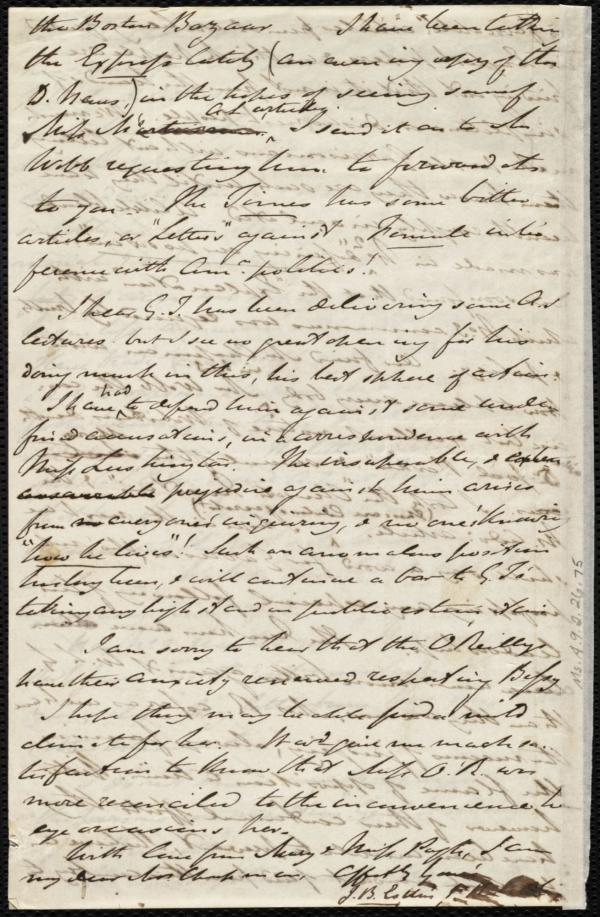 the Boston Bazaar I have been
the Express lately (an evening copy of the
D. News,) in the hopes of seeing some of
Miss M's A.S. articles, I send it on to
Webb requesting him to forward it
to you. The Times has some bitter
articles, or "Letters" against Female inter
ference with Amn. politics!
I hear G.T. has been delivering some A.S
lectures but I see no great opening for his
doing much in this, his best sphere of action.
I have had to defend him against some
accusations, in a correspondence with
Miss Lushington. The insuperable, &
prejudice against him arises
from everyone's inquiring, & no one's knowing
"how he lives"! Such an anomalous position
has long been, & will continue a bar to G.T's
taking any high stand in public
I am sorry to hear that the O'Reillys
have their anxiety renewed respecting Bessy
I hope they may be able find a mild
climate for her. It wd. give me much sa-
tisfaction to know that Miss O.R. was
more reconciled to the inconvenience he
eye occasions her.
With love from Mary & Miss I am
my dear Mrs Chapman, Affectly Yours
J.B. Estlin
Ms.A.9.2.26.75